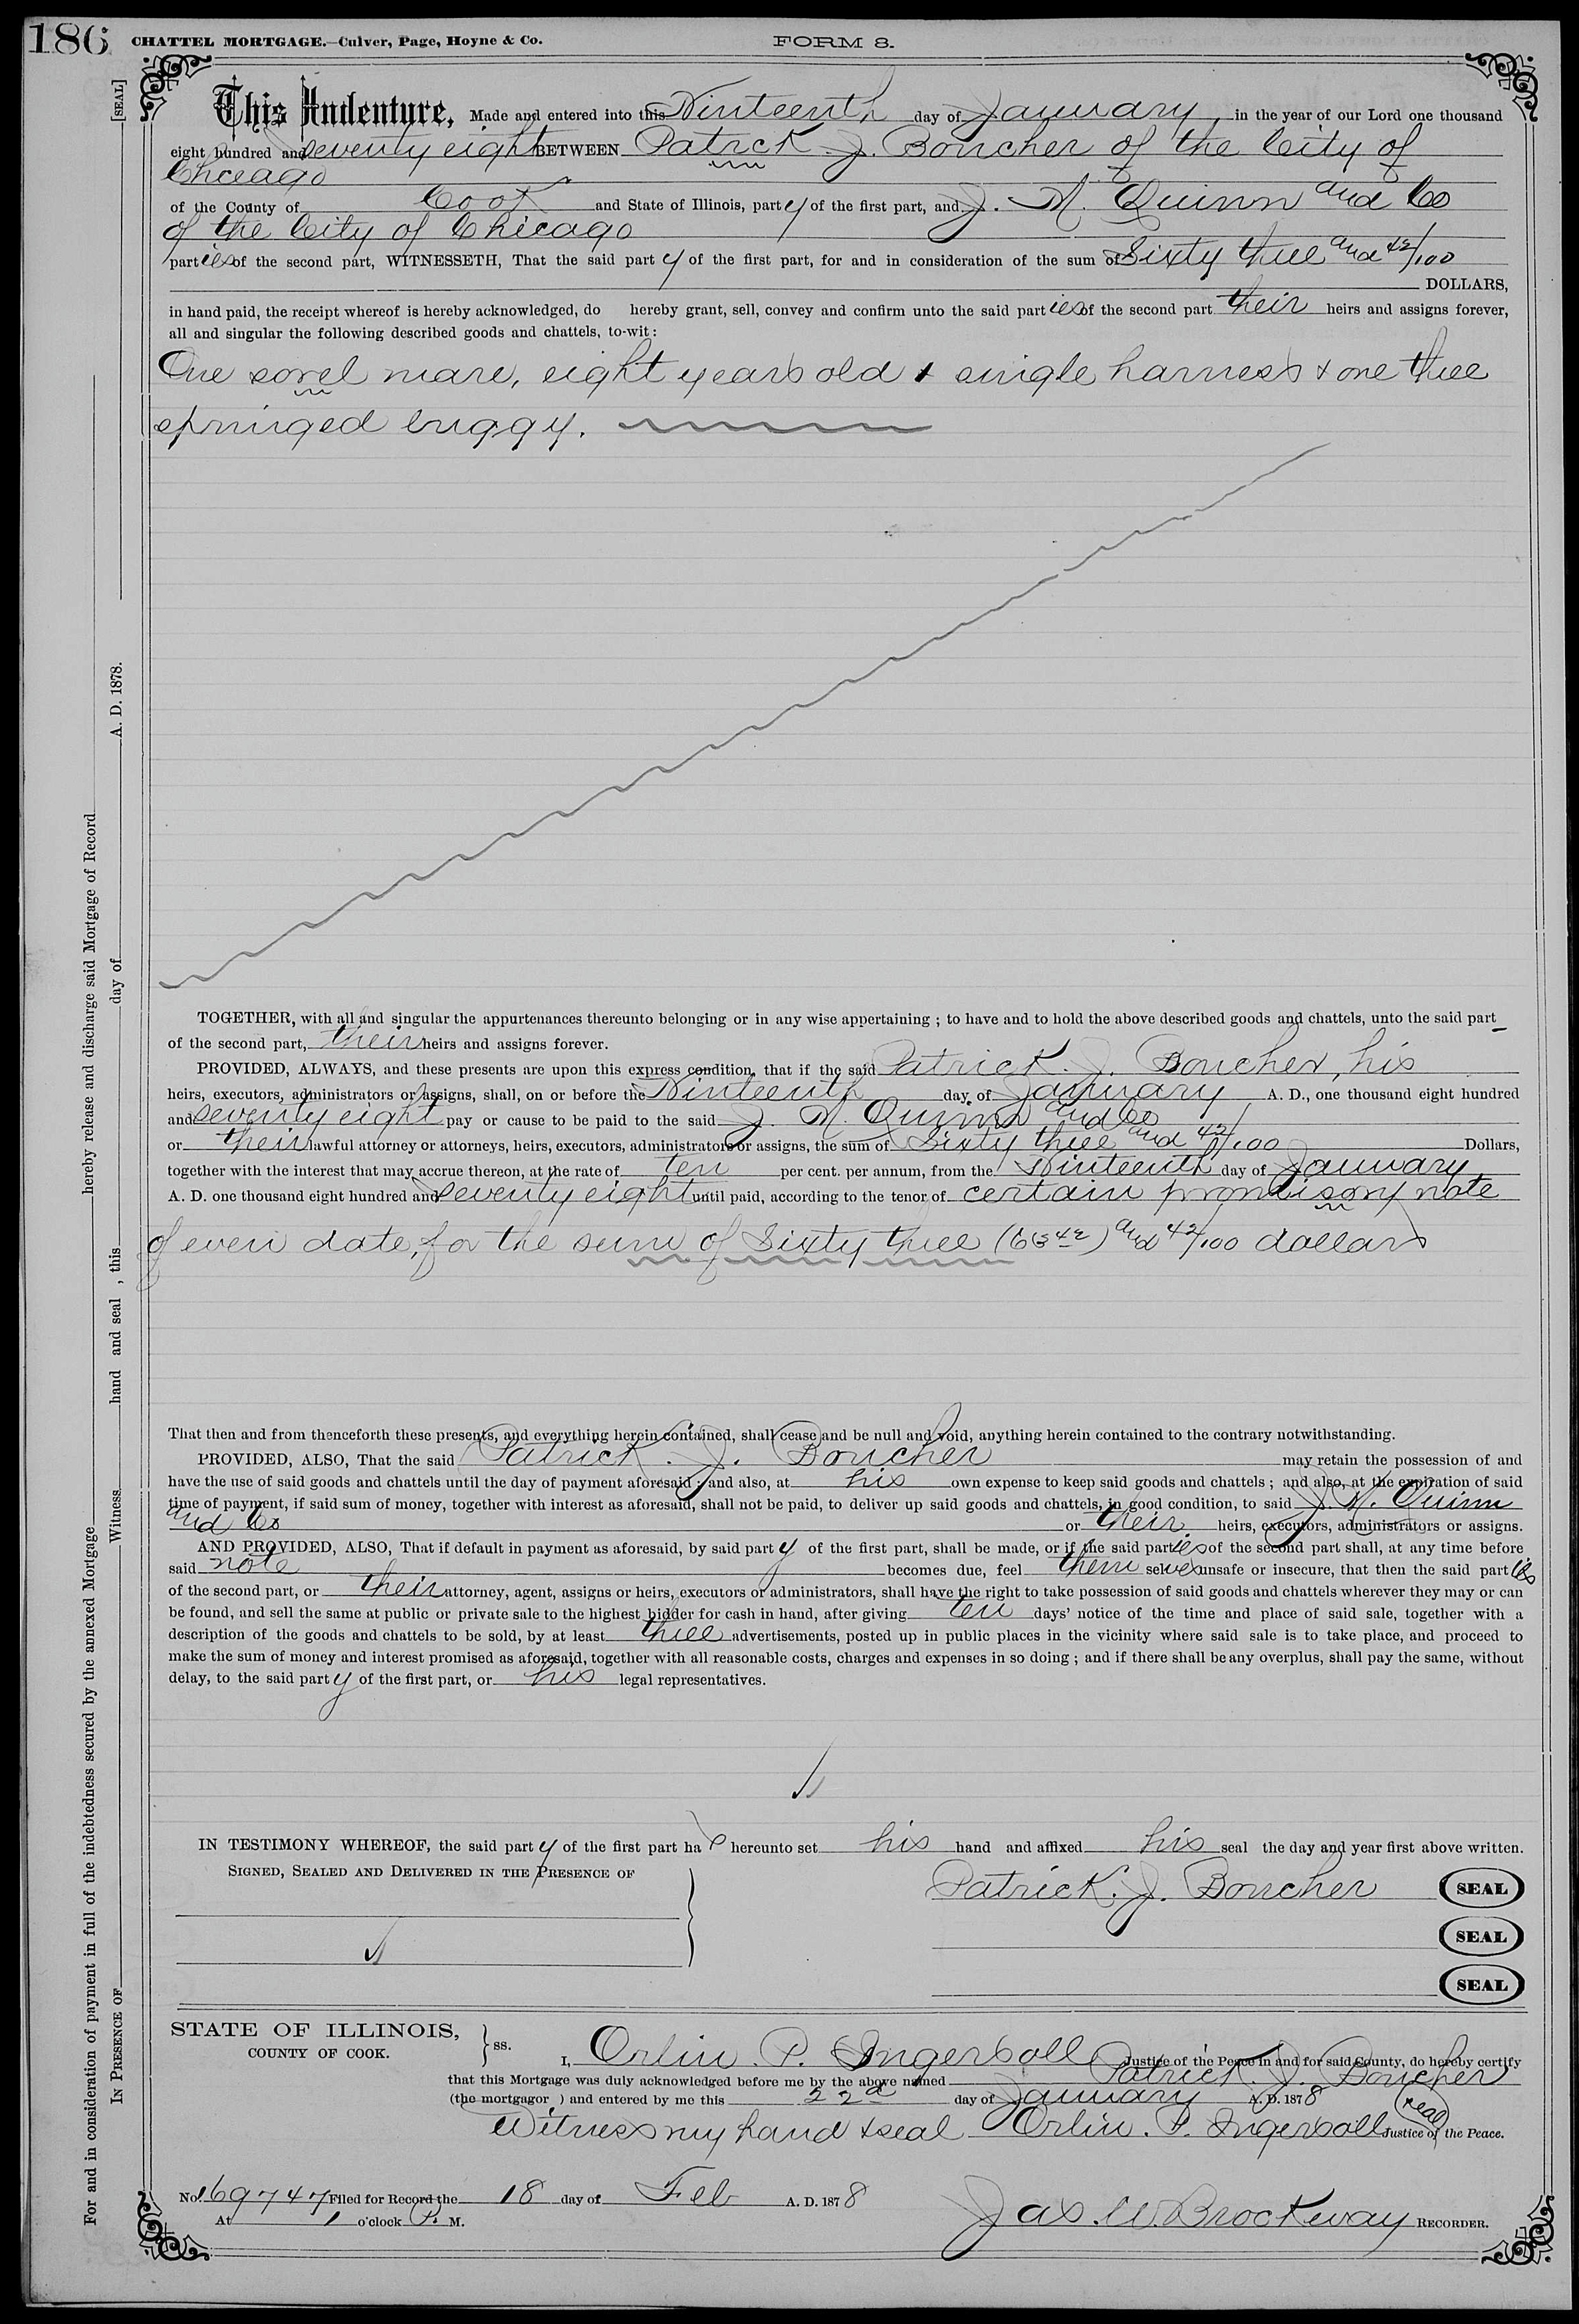 186
CHATTEL MORTGAGE.—Culver, Page, Hoyne & Co.
FORM 8.
This Indenture, Made and entered into this Ninteenth day of January, in the year of our Lord one thousand
eight hundred and seventy eight BETWEEN Patrck J. Boucher of the City of
Chicago
of the County of Cook and State of Illinois, party of the first part, and J. M. Quinn and Co
of the City of Chicago
parties of the second part, WITNESSETH, That the said party of the first part, for and in consideration of the sum of Sixty three and 42/100
DOLLARS,
in hand paid, the receipt whereof is hereby acknowledged, do hereby grant, sell, convey and confirm unto the said parties of the second part their heirs and assigns forever,
all and singular the following described goods and chattels, to-wit:
One sorel mare, eight years old & single harness & one three
springed buggy.
TOGETHER, with all and singular the appurtenances thereunto belonging or in any wise appertaining; to have and to hold the above described goods and chattels, unto the said part
of the second part, their heirs and assigns forever.
PROVIDED, ALWAYS, and these presents are upon this express condition, that if the said Patrick J. Boucher, his
heirs, executors, administrators or assigns, shall, on or before the Ninteenth day of January A. D., one thousand eight hundred
and seventy eight pay or cause to be paid to the said J. M. Quinn and Co
or their lawful attorney or attorneys, heirs, executors, administrators or assigns, the sum of Sixty three and 42/100 Dollars,
together with the interest that may accrue thereon, at the rate of ten per cent. per annum, from the Ninteenth day of January
A. D. one thousand eight hundred and seventy eight until paid, according to the tenor of certain promisory note
of even date, for the sum of Sixty three (63 42) and 42/100 dollars
That then and from thenceforth these presents, and everything herein contained, shall cease and be null and void, anything herein contained to the contrary notwithstanding.
PROVIDED, ALSO, That the said Patrick. J. Boucher may retain the possession of and
have the use of said goods and chattels until the day of payment aforesaid; and also, at his own expense to keep said goods and chattels; and also, at the expiration of said
time of payment, if said sum of money, together with interest as aforesaid, shall not be paid, to deliver up said goods and chattels, in good condition, to said J. M. Quinn
and Co or their heirs, executors, administrators or assigns.
AND PROVIDED, ALSO, That if default in payment as aforesaid, by said party of the first part, shall be made, or if the said parties of the second part shall, at any time before
said note becomes due, feel them selves unsafe or insecure, that then the said parties
of the second part, or their attorney, agent, assigns or heirs, executors or administrators, shall have the right to take possession of said goods and chattels wherever they may or can
be found, and sell the same at public or private sale to the highest bidder for cash in hand, after giving ten days' notice of the time and place of said sale, together with a
description of the goods and chattels to be sold, by at least three advertisements, posted up in public places in the vicinity where said sale is to take place, and proceed to
make the sum of money and interest promised as aforesaid, together with all reasonable costs, charges and expenses in so doing; and if there shall be any overplus, shall pay the same, without
delay, to the said party of the first part, or his legal representatives.
IN TESTIMONY WHEREOF, the said party of the first part ha hereunto set his hand and affixed his seal the day and year first above written.
SIGNED, SEALED AND DELIVERED IN THE PRESENCE OF
Patrick. J. Boucher SEAL
SEAL
SEAL
STATE OF ILLINOIS,
COUNTY OF COOK.
ss.
I, Orlin. P. Ingersoll Justice of the Peace in and for said County, do hereby certify
that this Mortgage was duly acknowledged before me by the above named Patrick. J. Boucher
(the mortgagor ) and entered by me this 22d day of January A. D. 1878
Witness my hand & seal Orlin. P. Ingersoll Justice of the Peace. seal
No. 169747 Filed for Record the 18 day of Feb A. D. 1878
At 1 o'clock P. M.
Jas. W. Brockway RECORDER.
For and in consideration of payment in full of the indebtedness secured by the annexed Mortgage hereby release and discharge said Mortgage of Record
Witness hand and seal , this day of A. D. 1878. [SEAL]
IN PRESENCE OF